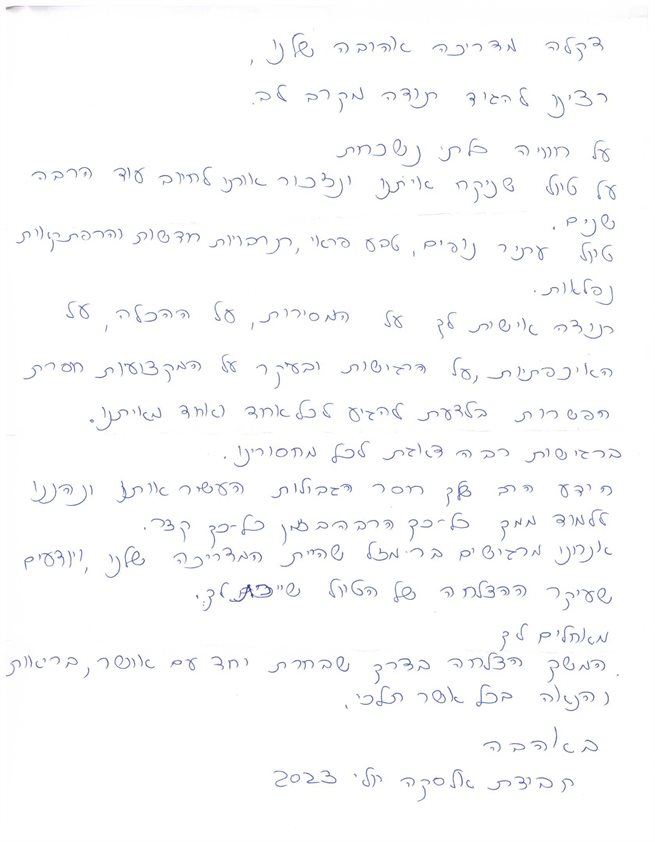 דקלה מדריכה אהובה שלנו,
רצינו להגיד תודה מקרב לב.
על חוויה בלתי נשכחת
על טיול שניקח איתנו ונזכור אותו לחיוב עוד הרבה
שנים.
טיול עתיר נופים, טבע פראי, תרבויות חדשות והרפתקאות
נפלאות.
תודה אישית לך על המסירות, על ההכלה, על
האיכפתיות, על הרגישות ובעיקר על המקצועיות חסרת
הפשרות בלדעת להגיע לכל אחד ואחד מאיתנו.
ברגישות רבה דאגת לכל מחסורינו.
הידע הרב שלך חסר הגבולות העשיר אותנו ונהננו
ללמוד ממך כל-כך הרבה בזמן כל-כך קצר.
אנחנו מרגישים בר מזל שהיית המדריכה שלנו, ויודעים
שעיקר ההצלחה של הטיול שייכת לך.
מאחלים לך
המשך הצלחה בדרך שבחרת יחד עם אושר, בריאות
והנאה בכל אשר תלכי.
באהבה
קבוצת אלסקה יולי 2023